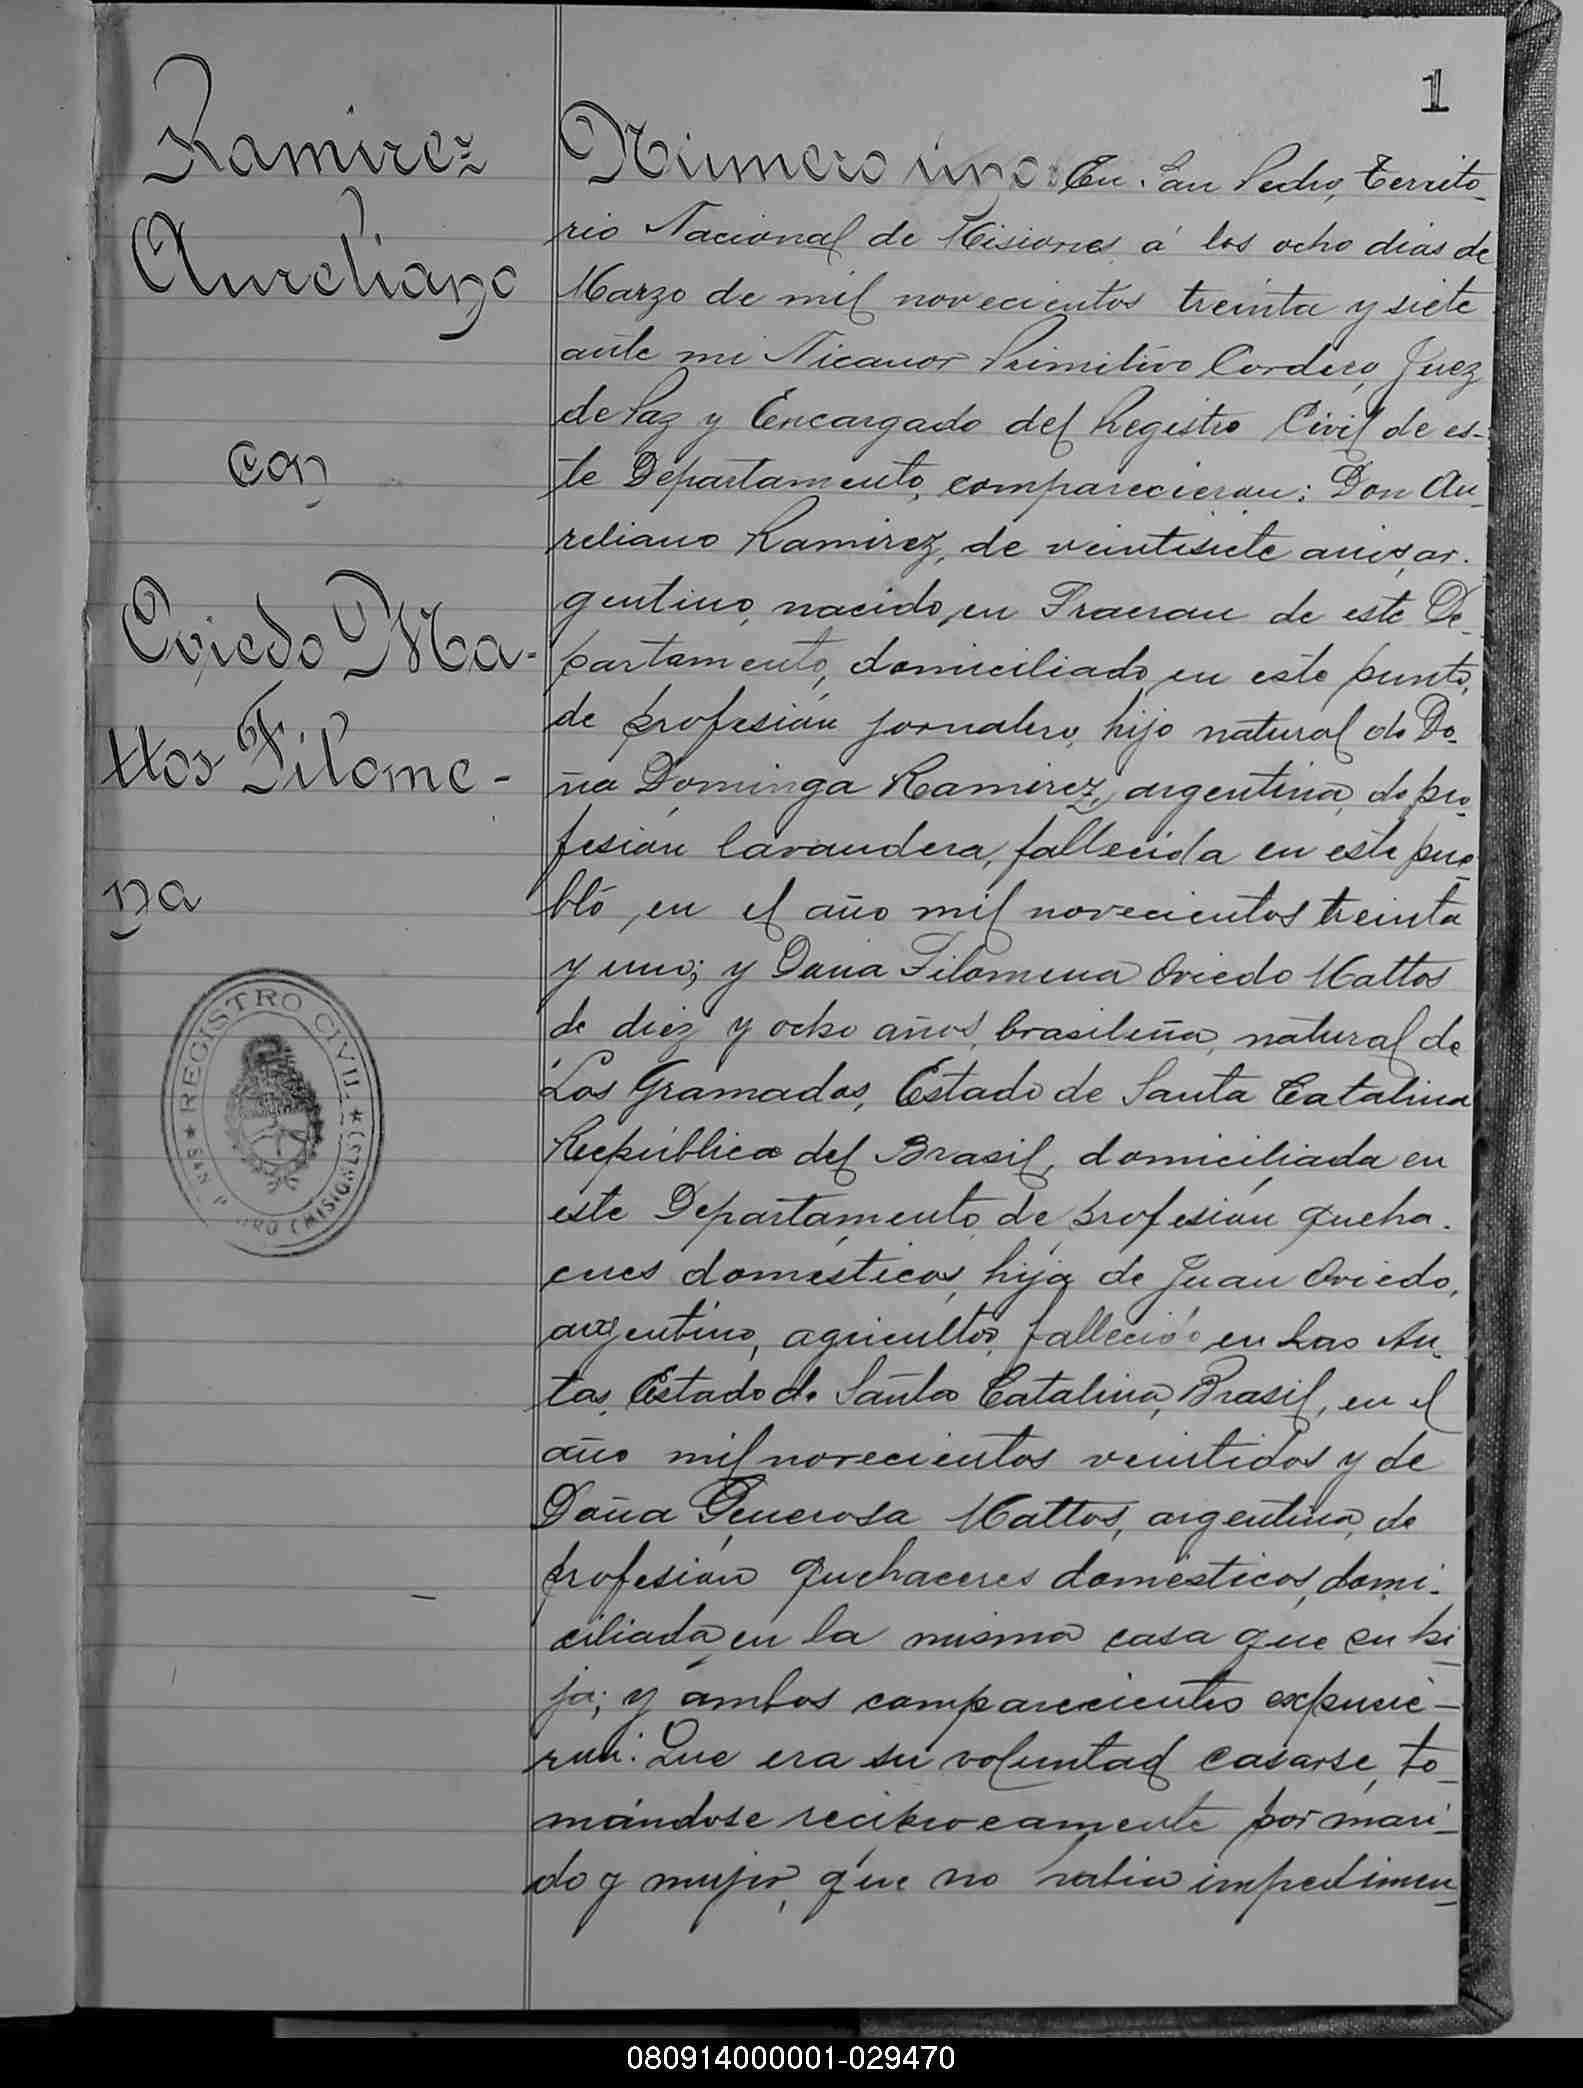 1
Ramirez
Aureliano
con
Oviedo Ma-
ttos Filome-
na
REGISTRO CIVIL
SAN PEDRO (MISIONES)
Número uno: En San Pedro, Territo-
rio Nacional de Misiones á los ocho dias de
Marzo de mil novecientos treinta y siete
ante mi Nicanor Primitivo Cordero, Juez
de Paz y Encargado del Registro Civil de es-
te Departamento, comparecieron: Don Au-
reliano Ramirez, de veintisiete años, ar-
gentino, nacido en Fracran de este De-
partamento, domiciliado en este punto,
de profesión jornalero, hijo natural de Do-
ña Dominga Ramirez, argentina, de pro-
fesión lavandera, fallecida en este pue-
blo, en el año mil novecientos treinta
y uno; y Doña Filomena Oviedo Mattos
de diez y ocho años, brasileña, natural de
Los Gramados, Estado de Santa Catalina
República del Brasil, domiciliada en
este Departamento, de profesión queha-
ceres domésticos, hija de Juan Oviedo,
argentino, agricultor, falleció en Las An-
tas, Estado de Santa Catalina, Brasil, en el
año mil novecientos veintidos y de
Doña Generosa Mattos, argentina, de
profesión quehaceres domésticos, domi-
ciliada en la misma casa que su hi-
ja; y ambos comparecientes expusie-
run: Que era su voluntad casarse, to-
mándose reciprocamente por mari-
do y mujer, que no habia impedimen-
080914000001-029470